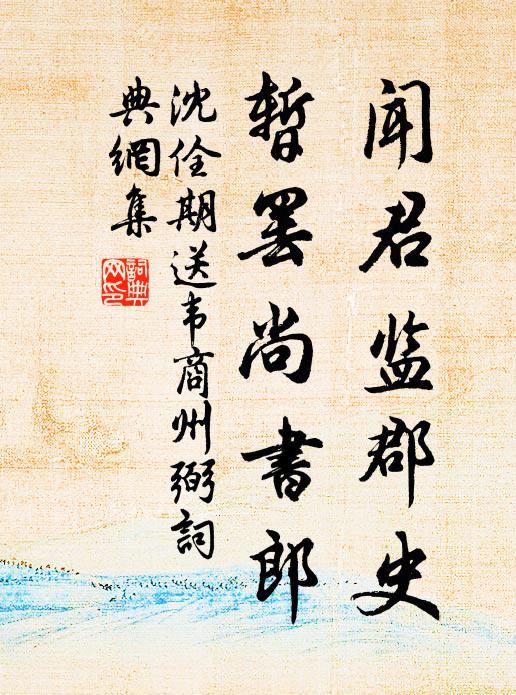 闻君监郡史
暂罢尚书郎
沈佺期送韦商州弼词
典網集
詞典
网印